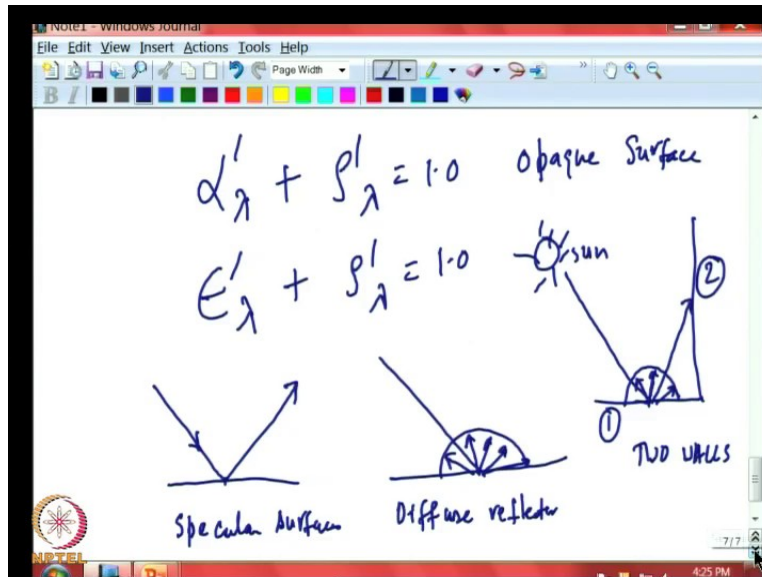 Note1 - Windows Journal
File Edit View Insert Actions Tools Help
Page Width
B I
α'λ + ρ'λ = 1.0 Opaque Surface
ε'λ + ρ'λ = 1.0
sun
②
①
TWO WALLS
Specular Surface
Diffuse reflector
NPTEL
7/7
4:25 PM